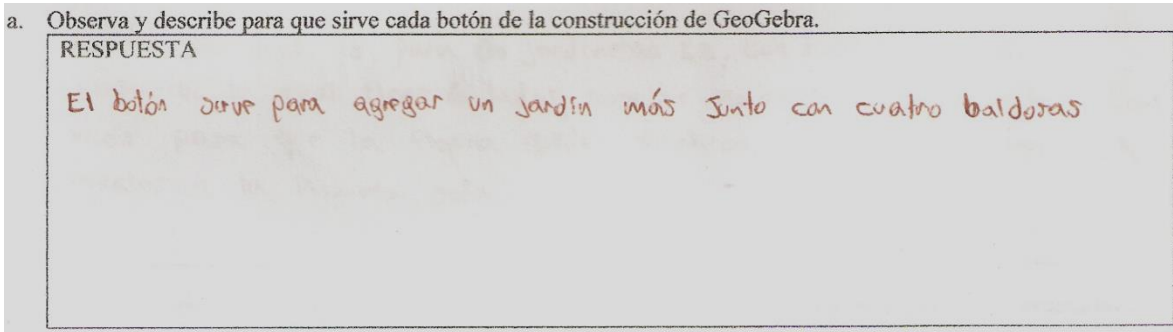 a. Observa y describe para que sirve cada botón de la construcción de GeoGebra.
RESPUESTA
El botón sirve para agregar un jardín más junto con cuatro baldosas